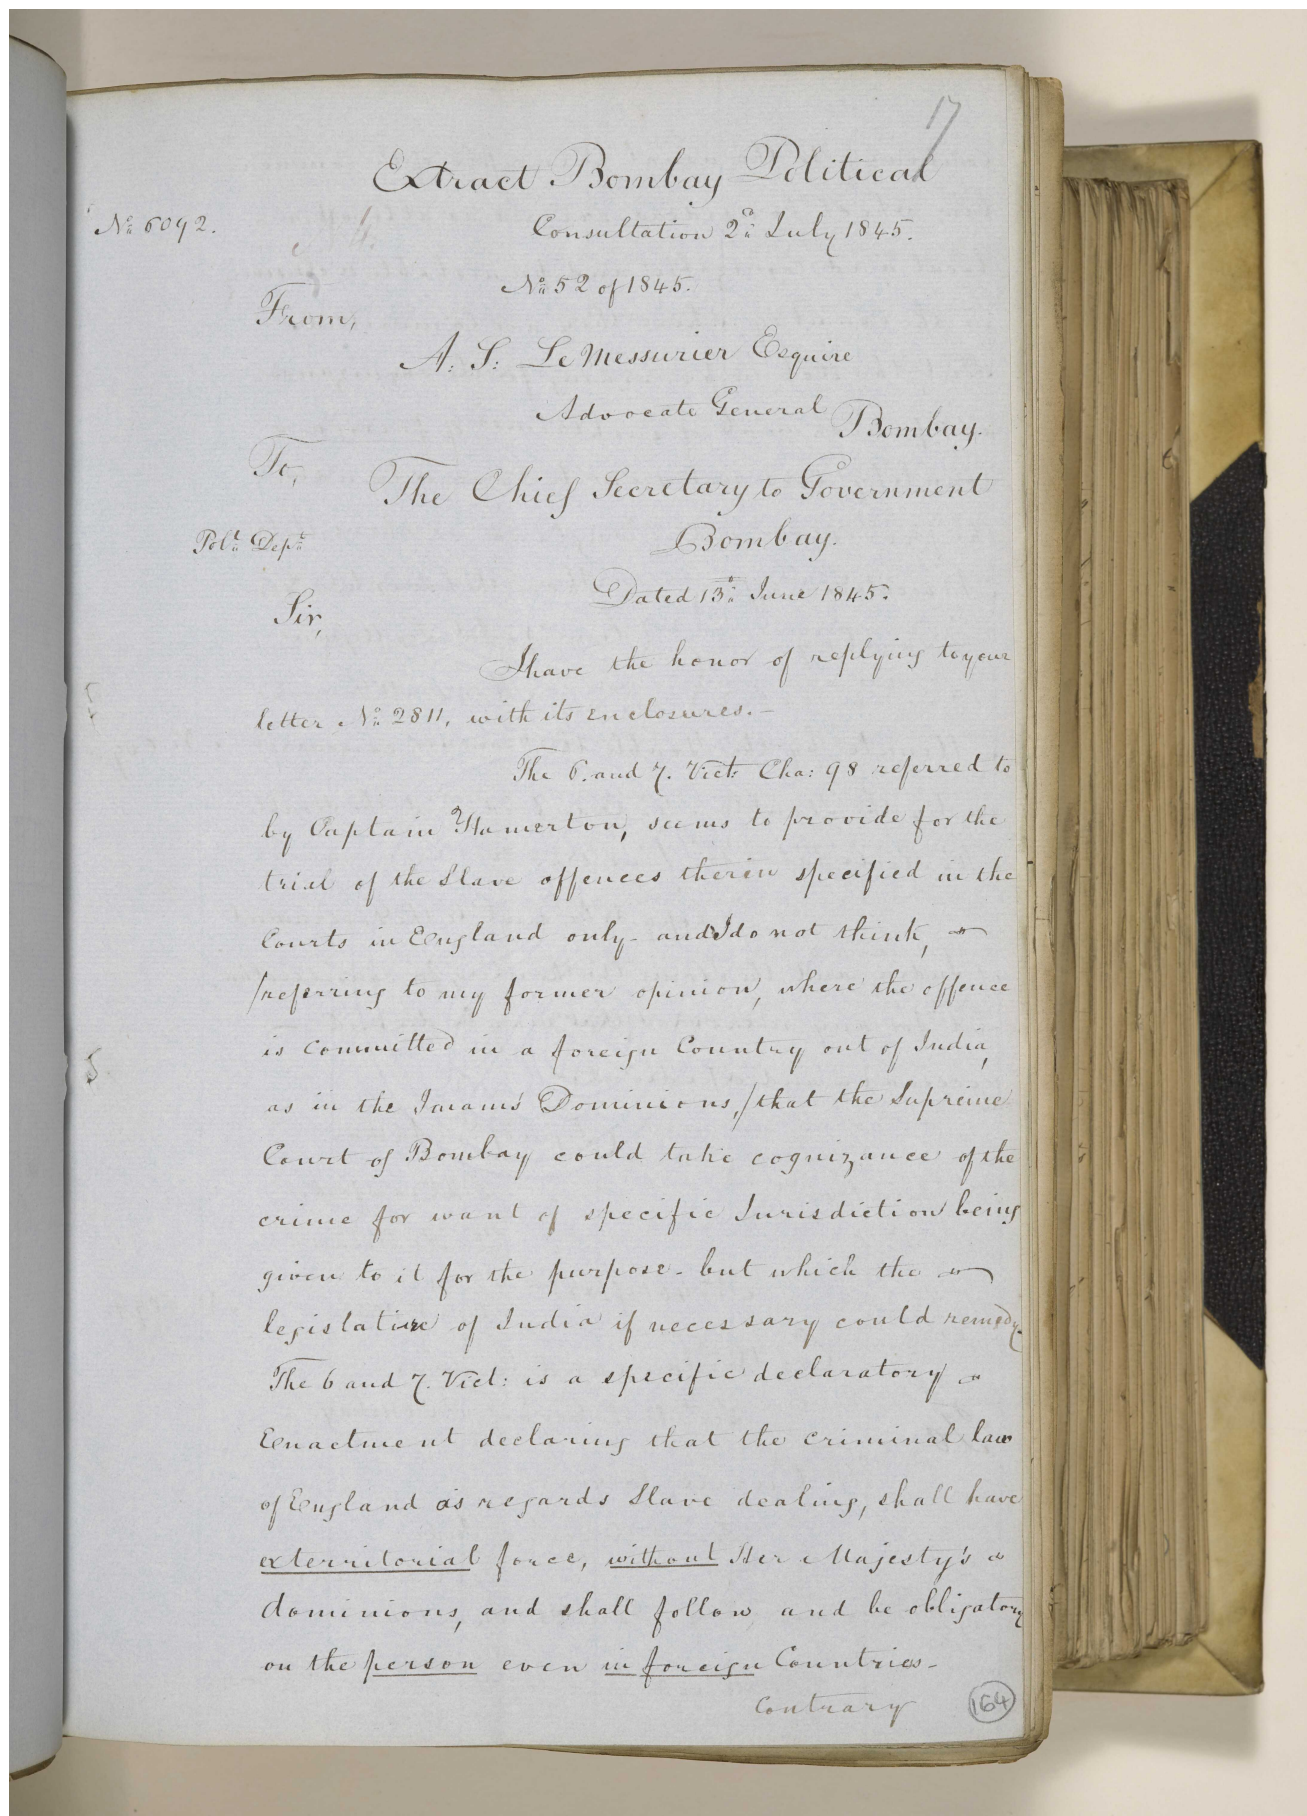 17
Extract Bombay Political
No 6092.
Consultation 2d July 1845.
No 52 of 1845.
From,
A: S: LeMessurier Esquire
Advocate General
Bombay.
To,
The Chief Secretary to Government
Polt Dept
Bombay.
Dated 13th June 1845.
Sir,
I have the honor of replying to your
letter No 2811, with its enclosures. -
The 6. and 7. Vict: Cha: 98 referred to
by Captain Hamerton, seems to provide for the
trial of the Slave offences therein specified in the
Courts in England only - and I do not think,
/referring to my former opinion, where the offence
is committed in a foreign Country out of India,
as in the Imam's Dominions,/ that the Supreme
Court of Bombay could take cognizance of the
crime for want of specific Jurisdiction being
given to it for the purpose - but which the
legislature of India if necessary could remedy.
The 6 and 7. Vict: is a specific declaratory
Enactment declaring that the criminal law
of England as regards Slave dealing, shall have
exterritorial force, without Her Majesty's
dominions, and shall follow and be obligatory
on the person even in foreign Countries -
Contrary
164